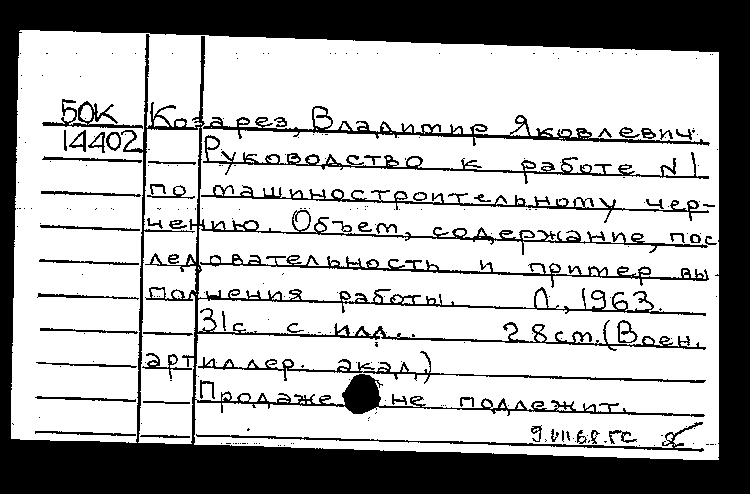 50К Козарез, Владимир Яковлевич.
14402 Руководство к работе №1
по машиностроительному чер-
чению. Объем, содержание, пос
ледовательность и пример вы-
полнения работы. Л., 1963.
31с. с илл.. 28см. (Воен.
артиллер. акад.)
Продаже не подлежит.
9.VII.68. ГС